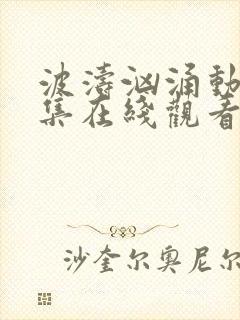 波濤汹涌動
集在綫觀看
沙奎尔奥尼尔